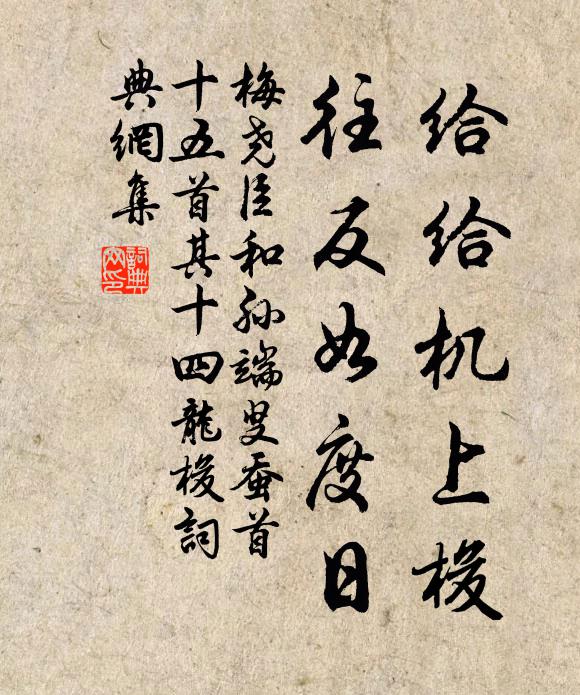 给给机上梭
往反如度日
梅尧臣和孙端叟蚕首
十五首其十四龍梭詞
典網集
詞典